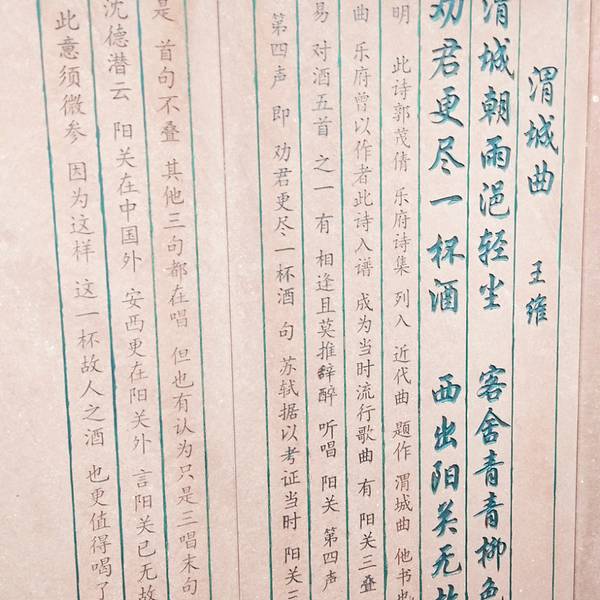 渭城曲 王维
渭城朝雨浥轻尘 客舍青青柳色
劝君更尽一杯酒 西出阳关无故
此诗郭茂倩 乐府诗集 列入 近代曲 题作 渭城曲 他书也
曲 乐府曾以作者此诗入谱 成为当时流行歌曲 有 阳关三叠
易 对酒五首 之一 有 相逢且莫推辞醉 听唱 阳关 第四声
第四声 即 劝君更尽一杯酒 句 苏轼据以考证当时 阳关三
是 首句不叠 其他三句都在唱 但也有认为只是三唱末句
沈德潜云 阳关在中国外 安西更在阳关外 言阳关已无故
此意须微参 因为这样 这一杯故人之酒 也更值得喝了